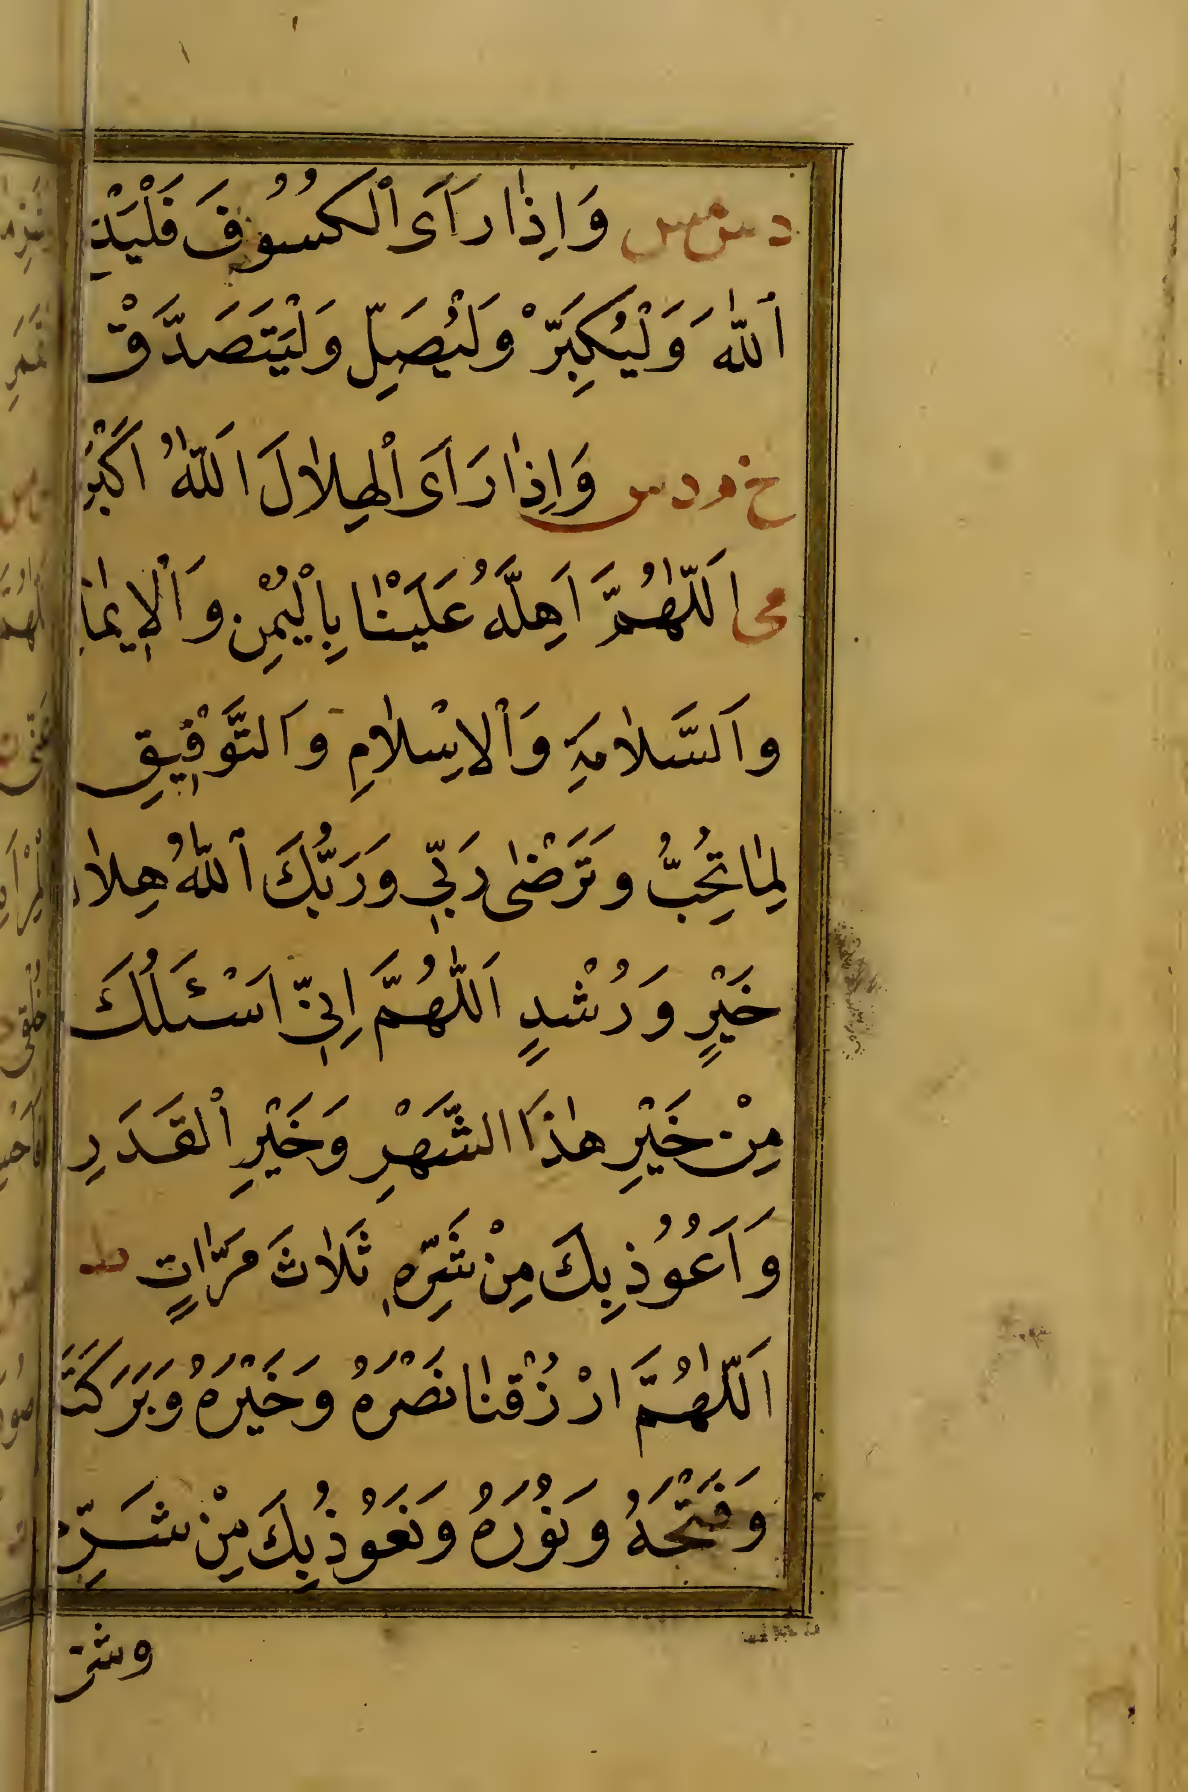 د س مس وَاِذٰا رَاَىَ ٱلْكُسُوُفَ فَلْيَدْ
ٱللّٰهَ وَلْيُكَبِّرْ وَلْيُصَلِّ وَلْيَتَصَدَّقْ
خ م د س وَاِذٰا رَاَىَ ٱلْهِلٰالَ اَللّٰهُ اَكْبَرُ
مى اَللّٰهُمَّ اَهِلَّهُ عَلَيْنٰا بِالْيُمْنِ وَٱلْاِيمٰا
وَٱلسَّلٰامَةِ وَٱلْاِسْلٰامِ وَٱلتَّوْفِيقِ
لِمٰا تُحِبُّ وَتَرْضٰى رَبِّى وَرَبُّكَ ٱللّٰهُ هِلٰا
خَيْرٍ وَرُشْدٍ اَللّٰهُمَّ اِنِّى اَسْئَلُكَ
مِنْ خَيْرِ هٰذَا الشَّهْرِ وَخَيْرِ ٱلْقَدَرِ
وَاَعُوُذُ بِكَ مِنْ شَرِّهِ ثَلٰاثَ مَرّٰاتٍ ط
اَللّٰهُمَّ ارْزُقْنٰا نَصْرَهُ وَخَيْرَهُ وَبَرَكَتَ
وَفَتْحَهُ وَنُوُرَهُ وَنَعُوُذُ بِكَ مِنْ شَرِّهِ
وشر